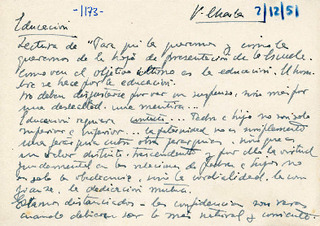 -1173-
2/12/51
Educación
Lectura de "Para qué la queremos y cómo la
queremos de la hoja de presentación de la Escuela.
Como ven el objetivo último es la educación. El hom-
bre se hace por la educación.
No deben disgustarse por ver un suspenso, sino más por
una deslealtad, una mentira...
Educación requiere contacto... Padre e hijo no son solo
superior e inferior... la paternidad no es simplemente
una jerarquía entre otras jerarquías, sino que es
un valor distinto, trascendente, por ello la virtud
fundamental en las relaciones de Padres e hijos no
es solo la obediencia, sino la cordialidad, la con
fianza, la dedicación mutua.
Estamos distanciados - las confidencias son raras
cuando debieran ser lo más natural y corriente.